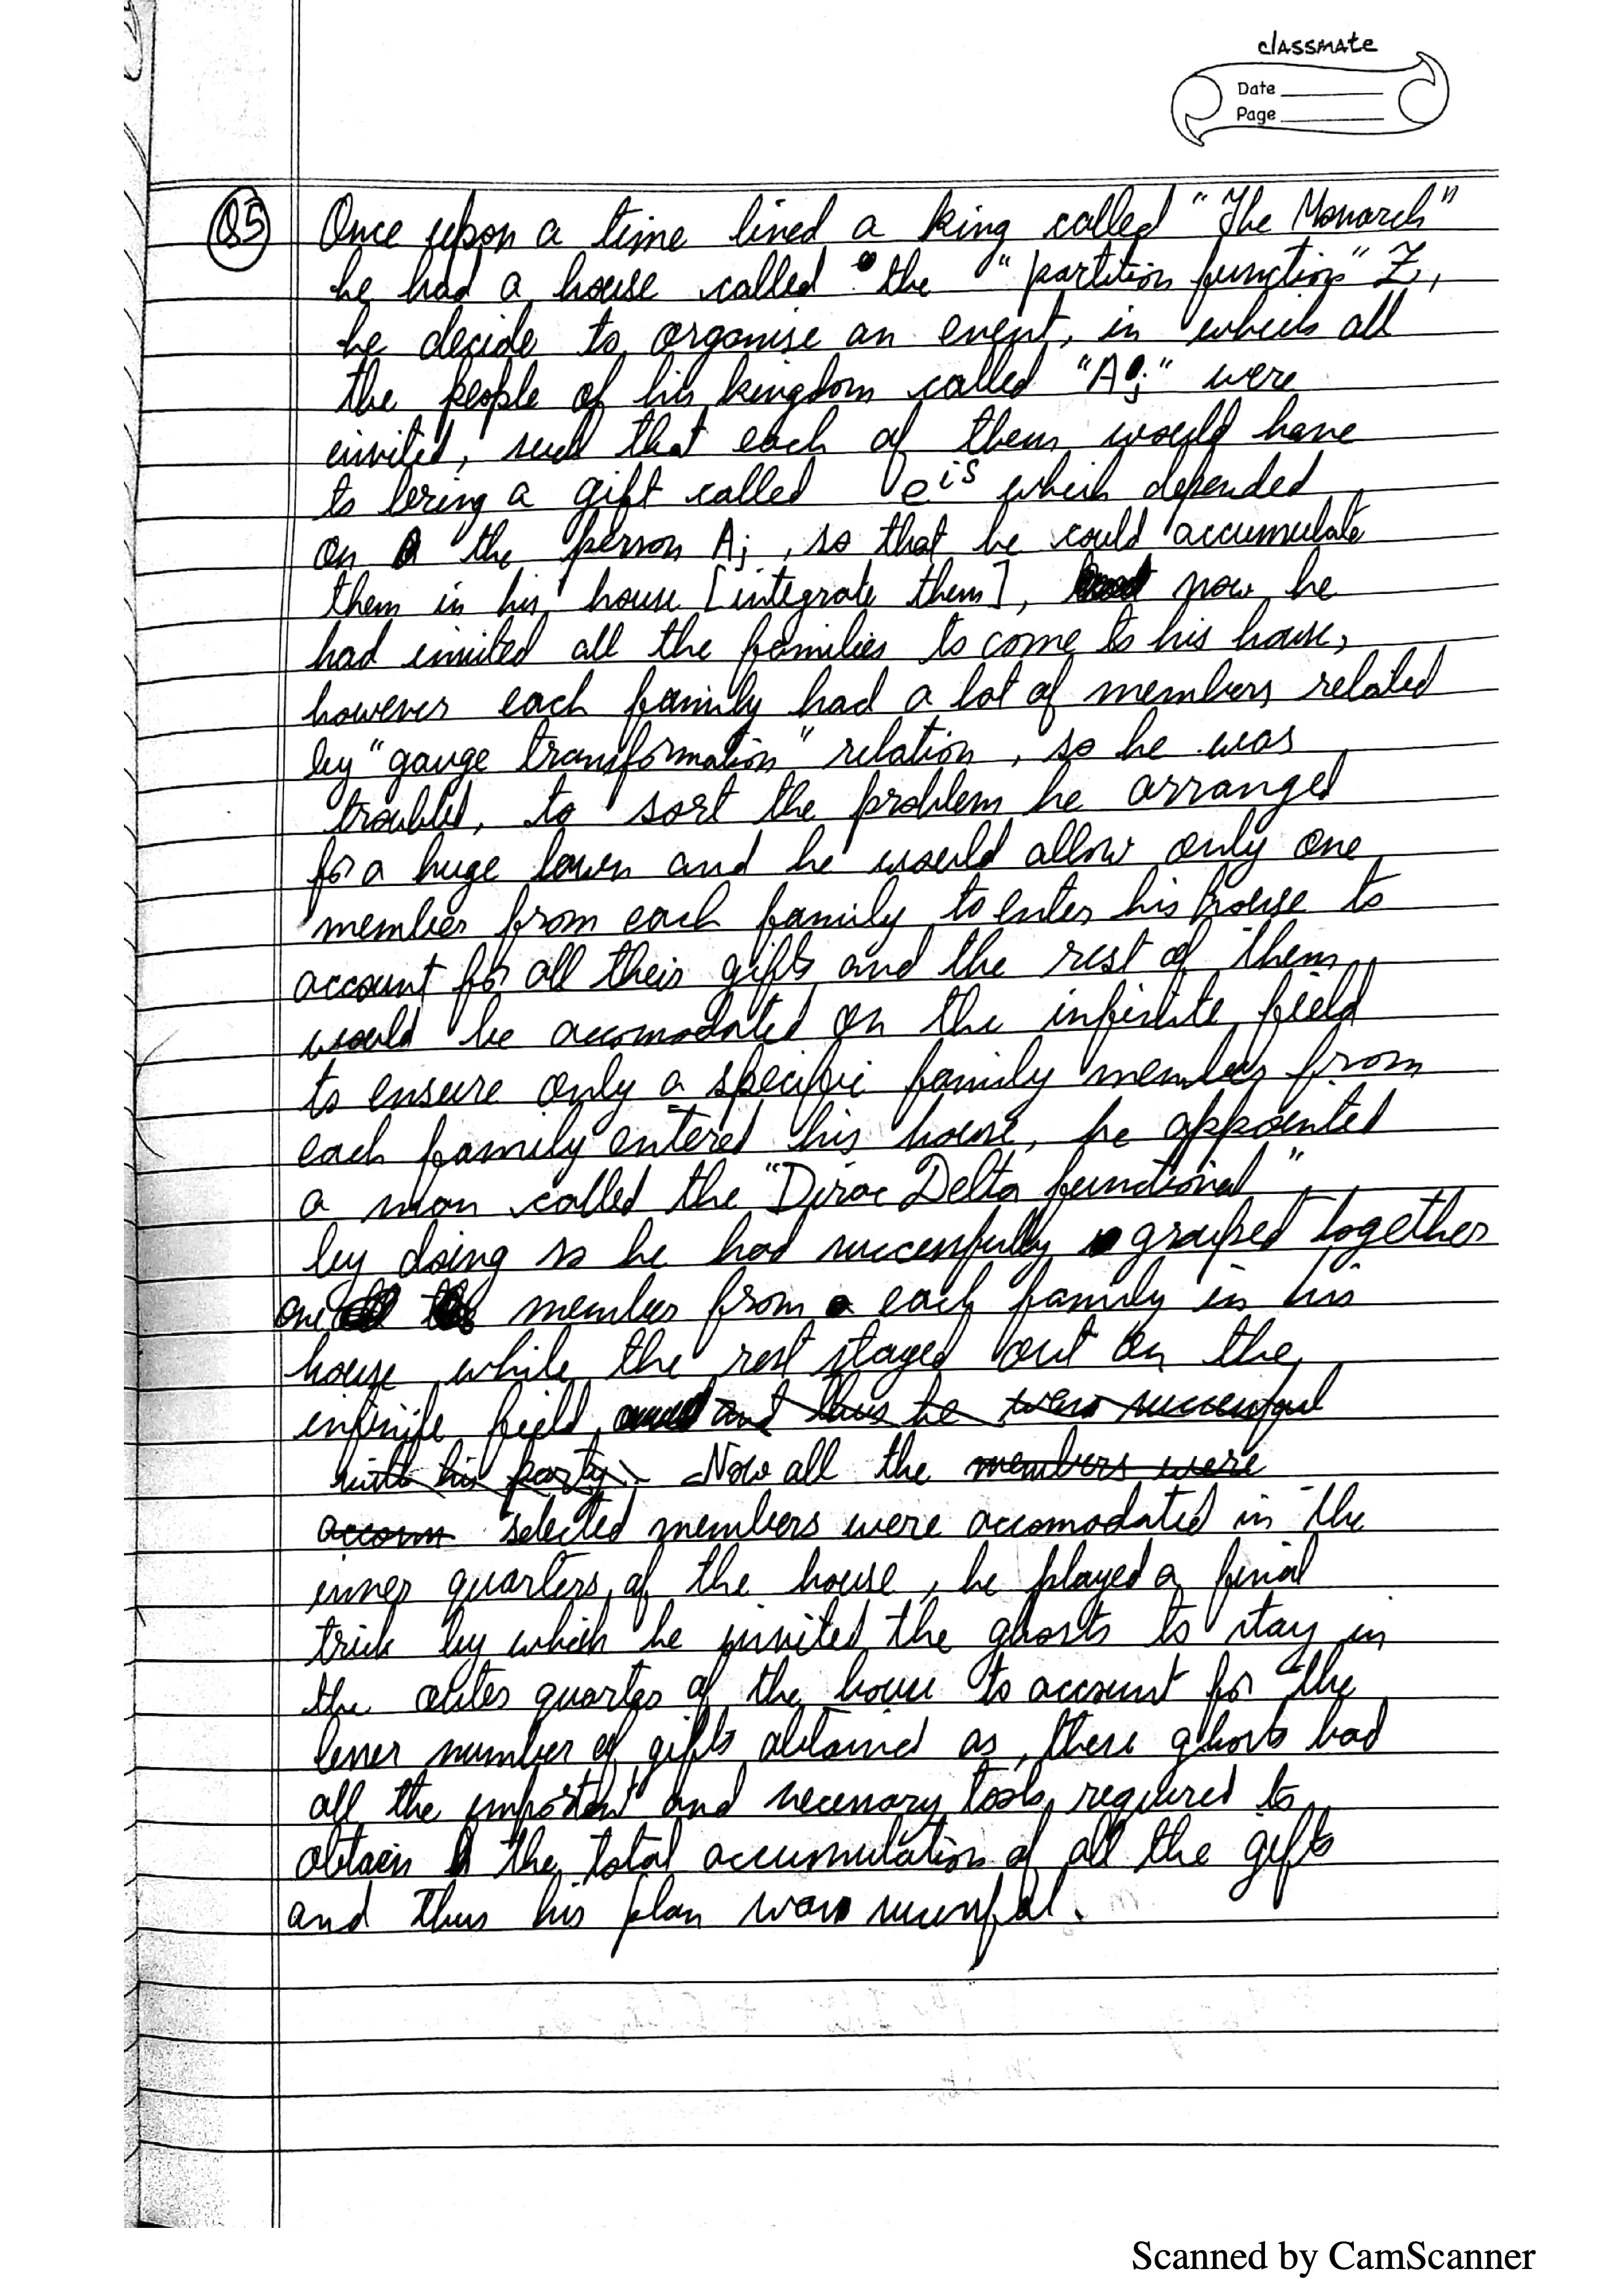 classmate
Date
Page
Q5
Once upon a time lived a king called "The Monarch"
he had a house called the "partition function" Z,
he decide to organise an event, in which all
the people of his kingdom called "Aj" were
invited, such that each of them would have
to bring a gift called e^iS which depended
on the person Aj, so that he could accumulate
them in his house [integrate them], now he
had invited all the families to come to his house,
however each family had a lot of members related
by "gauge transformation" relation, so he was
troubled, to sort the problem he arranged
for a huge lawn and he would allow only one
member from each family to enter his house to
account for all their gifts and the rest of them
would be accomodated on the infinite field
to ensure only a specific family member from
each family entered his house, he appointed
a man called the "Dirac Delta functional"
by doing so he had successfully grouped together
one member from each family in his
house while the rest stayed out on the
infinite field and thus he was successful
with his party. Now all the members were
accom selected members were accomodated in the
inner quarters of the house, he played a final
trick by which he invited the ghosts to stay in
the outer quarter of the house to account for the
lesser number of gifts obtained as, these ghosts had
all the important and necessary tools required to
obtain the total accumulation of all the gifts
and thus his plan was successful.
Scanned by CamScanner